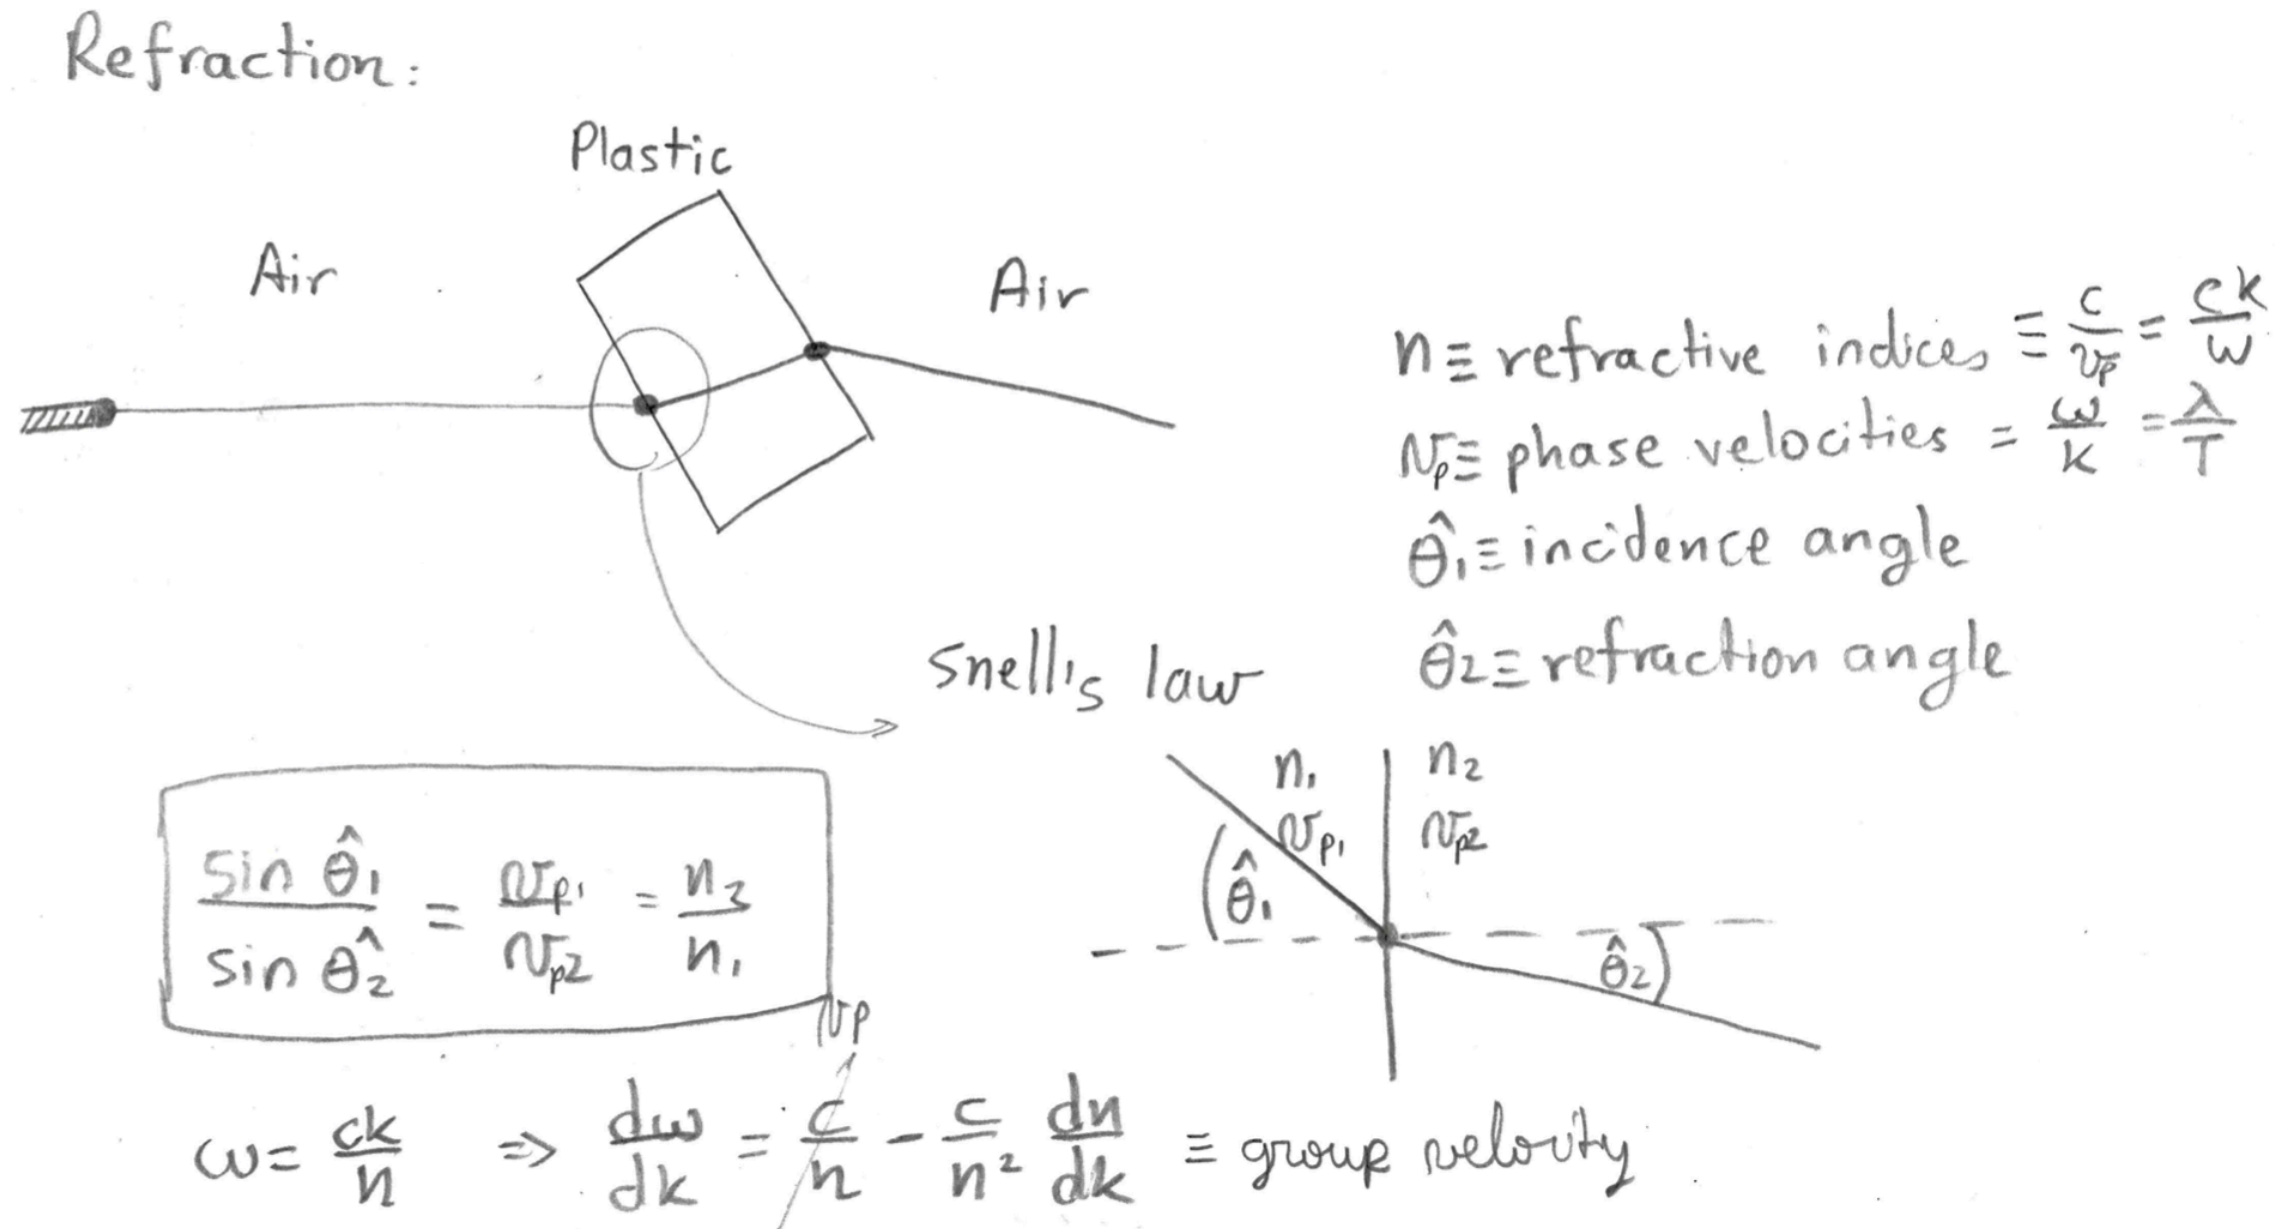 Refraction:
Plastic
Air
Air
n ≡ refractive indices ≡ c/v_p = ck/ω
v_p ≡ phase velocities = ω/k = λ/T
θ̂₁ ≡ incidence angle
θ̂₂ ≡ refraction angle
Snell's law
n₁ n₂
v_p1 v_p2
θ̂₁
θ̂₂
sin θ̂₁ / sin θ̂₂ = v_p1 / v_p2 = n₂ / n₁
v_p
ω = ck/n ⇒ dω/dk = c/n - c/n² dn/dk ≡ group velocity